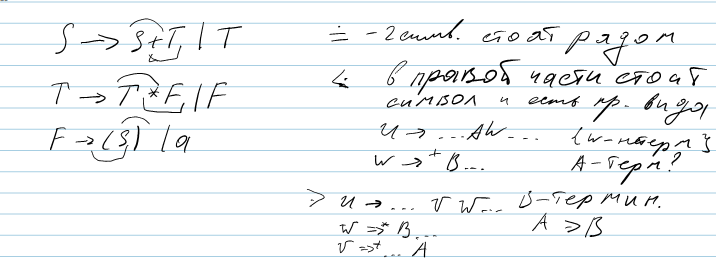 S → S+T | T
T → T*F | F
F → (S) | a
≐ - 2 симв. стоят рядом
<· в правой части стоит
символ и есть пр. вида
U → ...AW... {W-нтерм}
W →⁺ B... A-терм?
·> U → ... V W... B-термин.
W ⇒* B... A ·> B
V ⇒⁺ ... A